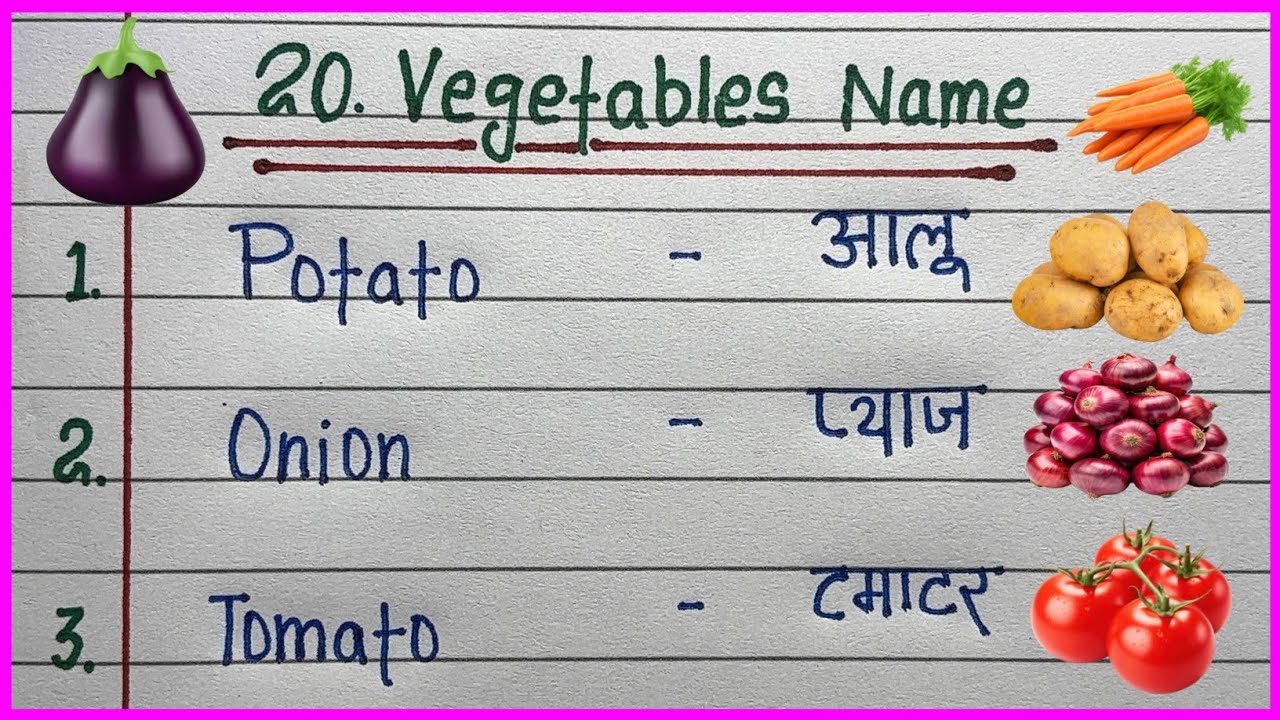 20. Vegetables Name
1. Potato - आलू
2. Onion - प्याज
3. Tomato - टमाटर